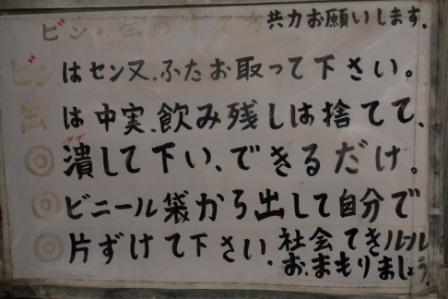 ビン・缶のすて方 共力お願いします。
ビンはセン又、ふたお取って下さい。
缶は中実、飲み残しは捨てて、
◎潰して下い、できるだけ。
◎ビニール袋から出して自分で
◎片ずけて下さい。社会てきルール
お、まもりましょう